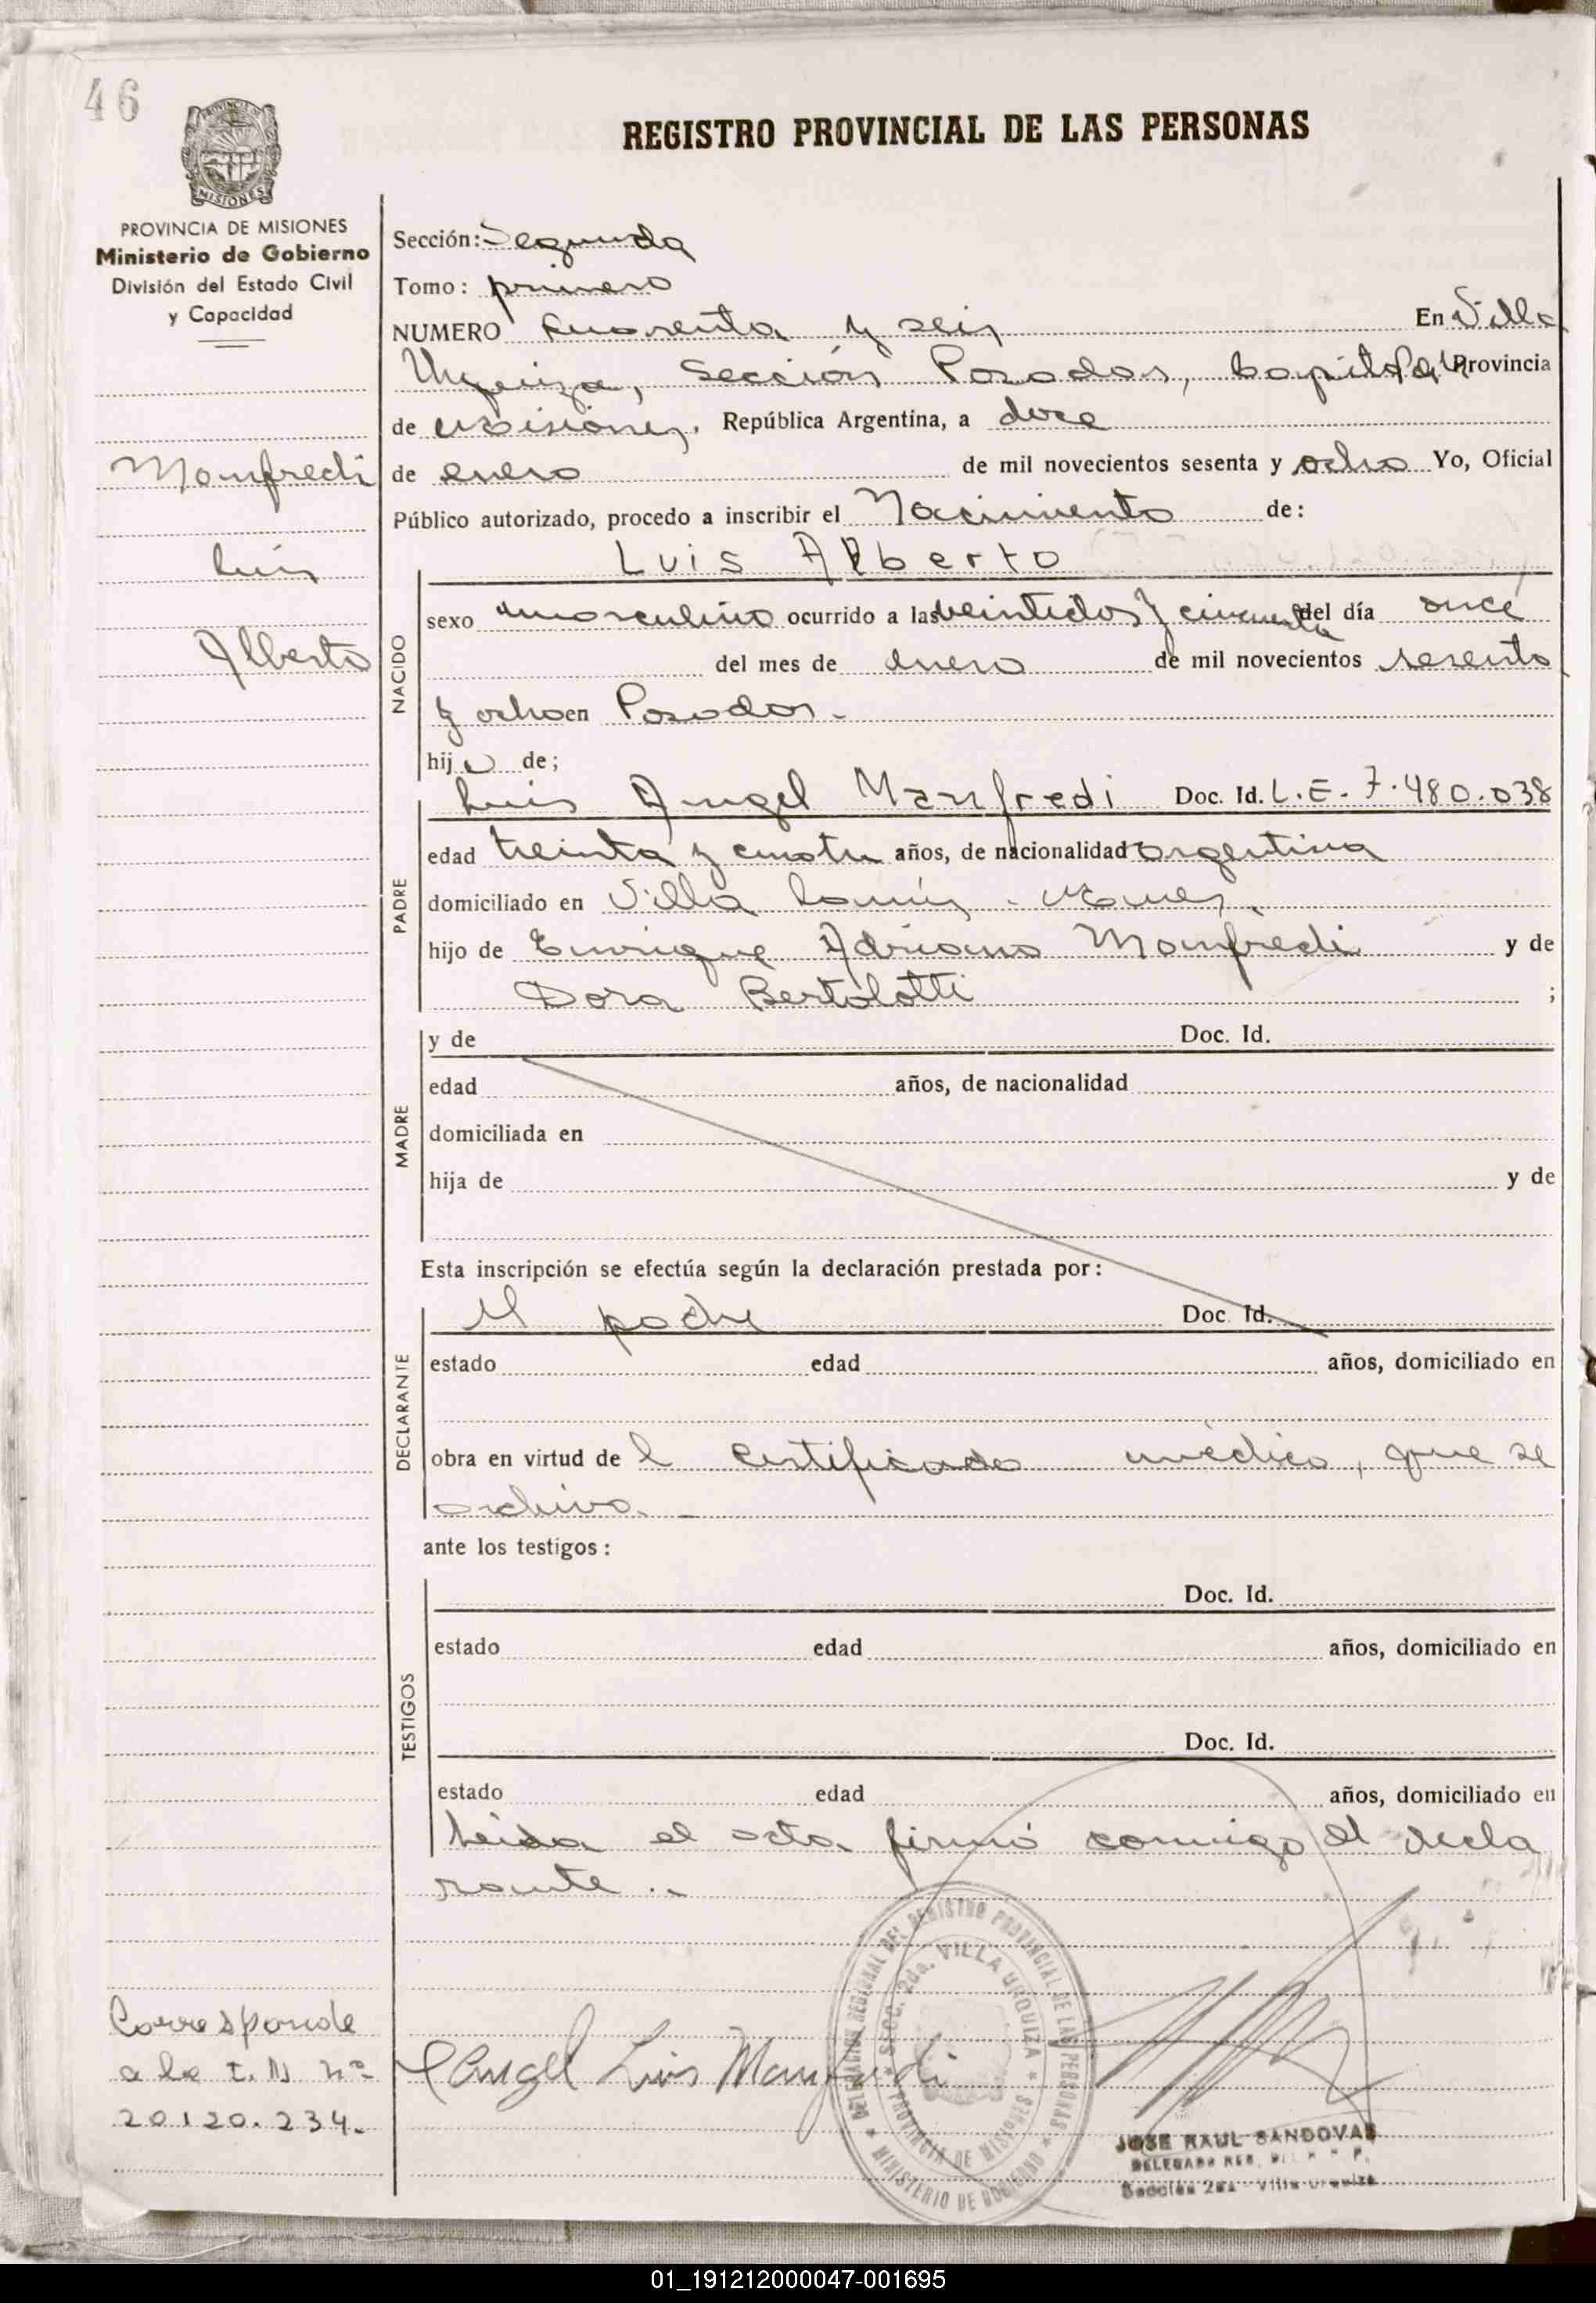 46
REGISTRO PROVINCIAL DE LAS PERSONAS
PROVINCIA DE MISIONES
MISIONES
PROVINCIA DE MISIONES
Ministerio de Gobierno
División del Estado Civil
y Capacidad
Manfredi
Luis
Alberto
Sección: Segunda
Tomo: primero
NUMERO cuarenta y seis En Villa
Urquiza, Sección Posadas, Capital de la Provincia
de Misiones, República Argentina, a doce
de enero de mil novecientos sesenta y ocho Yo, Oficial
Público autorizado, procedo a inscribir el Nacimiento de:
Luis Alberto
NACIDO
sexo masculino ocurrido a las veintidos y cincuenta del día once
del mes de enero de mil novecientos sesenta
y ocho en Posadas.
hijo de;
PADRE
Luis Angel Manfredi Doc. Id. L.E. 7.480.038
edad treinta y cuatro años, de nacionalidad argentina
domiciliado en Villa
hijo de Enrique Adriano Manfredi y de
Dora Bertolotti ;
MADRE
y de Doc. Id.
edad años, de nacionalidad
domiciliada en
hija de y de
Esta inscripción se efectúa según la declaración prestada por:
DECLARANTE
El padre Doc. Id.
estado edad años, domiciliado en
obra en virtud de l certificado médico, que se
archiva.
ante los testigos:
TESTIGOS
Doc. Id.
estado edad años, domiciliado en
Doc. Id.
estado edad años, domiciliado en
Leida el acta firmó conmigo el decla
rante.
Corresponde
a la L.N nº
20120.234.
Angel Luis Manfredi
DELEGACION REGIONAL DEL REGISTRO PROVINCIAL DE LAS PERSONAS
SECC. 2da. VILLA URQUIZA
PROVINCIA DE MISIONES
MINISTERIO DE GOBIERNO
JOSE RAUL SANDOVAL
DELEGADO REG.
Sección 2da Villa Urquiza
01_191212000047-001695